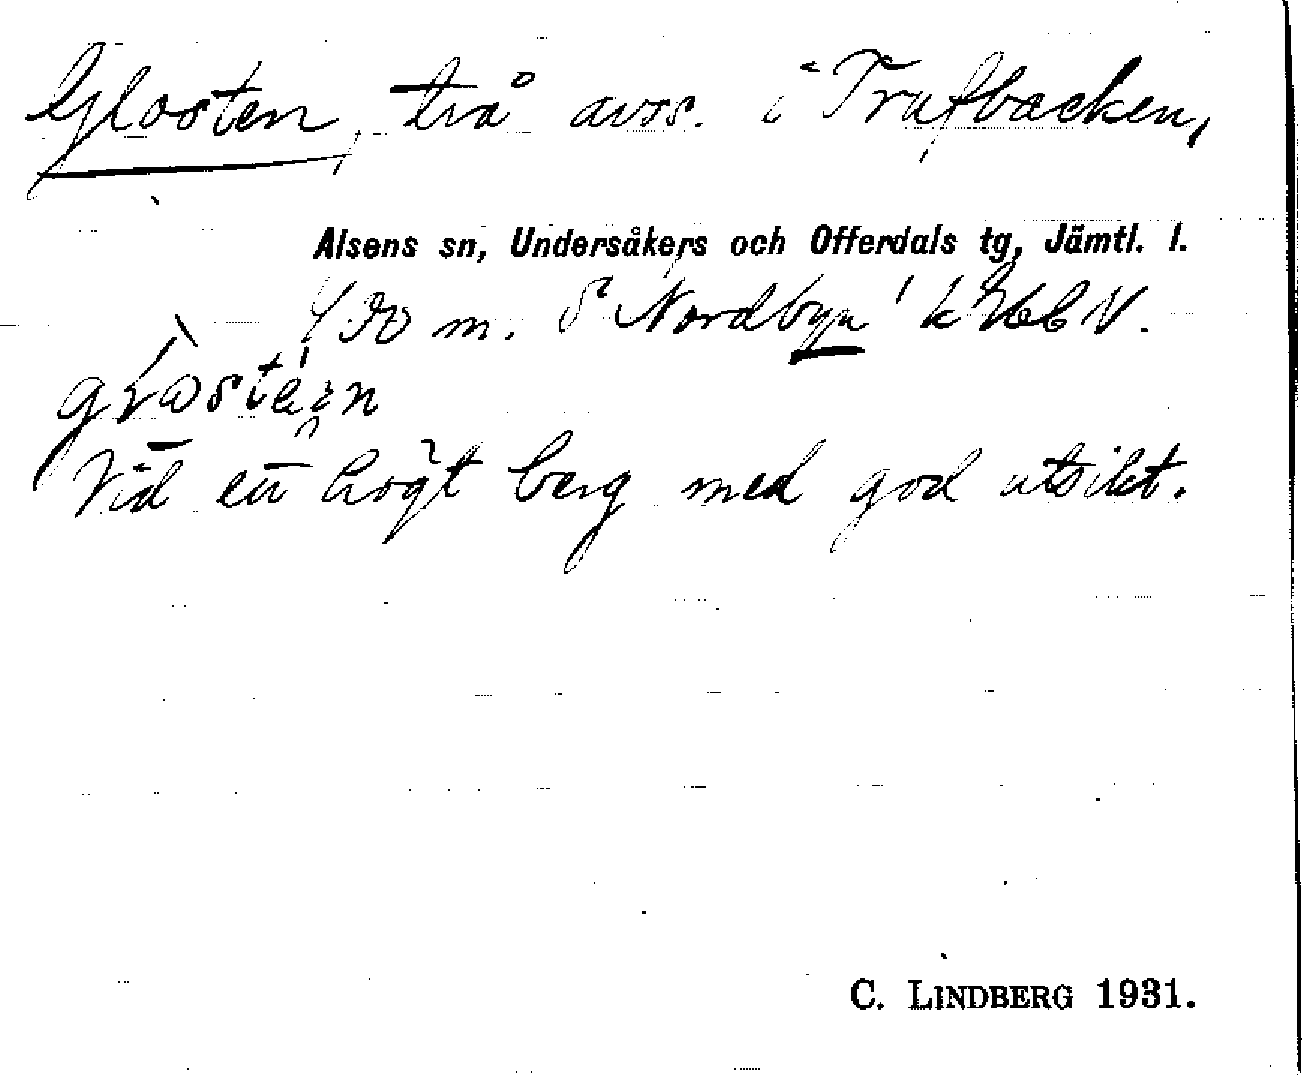 Glosten, två avss. i Trafbacken,
Alsens sn, Undersåkers och Offerdals tg, Jämtl. l.
430 m. S "Nordbyn" k
Vid ett högt berg med god utsikt.
C. LINDBERG 1931.